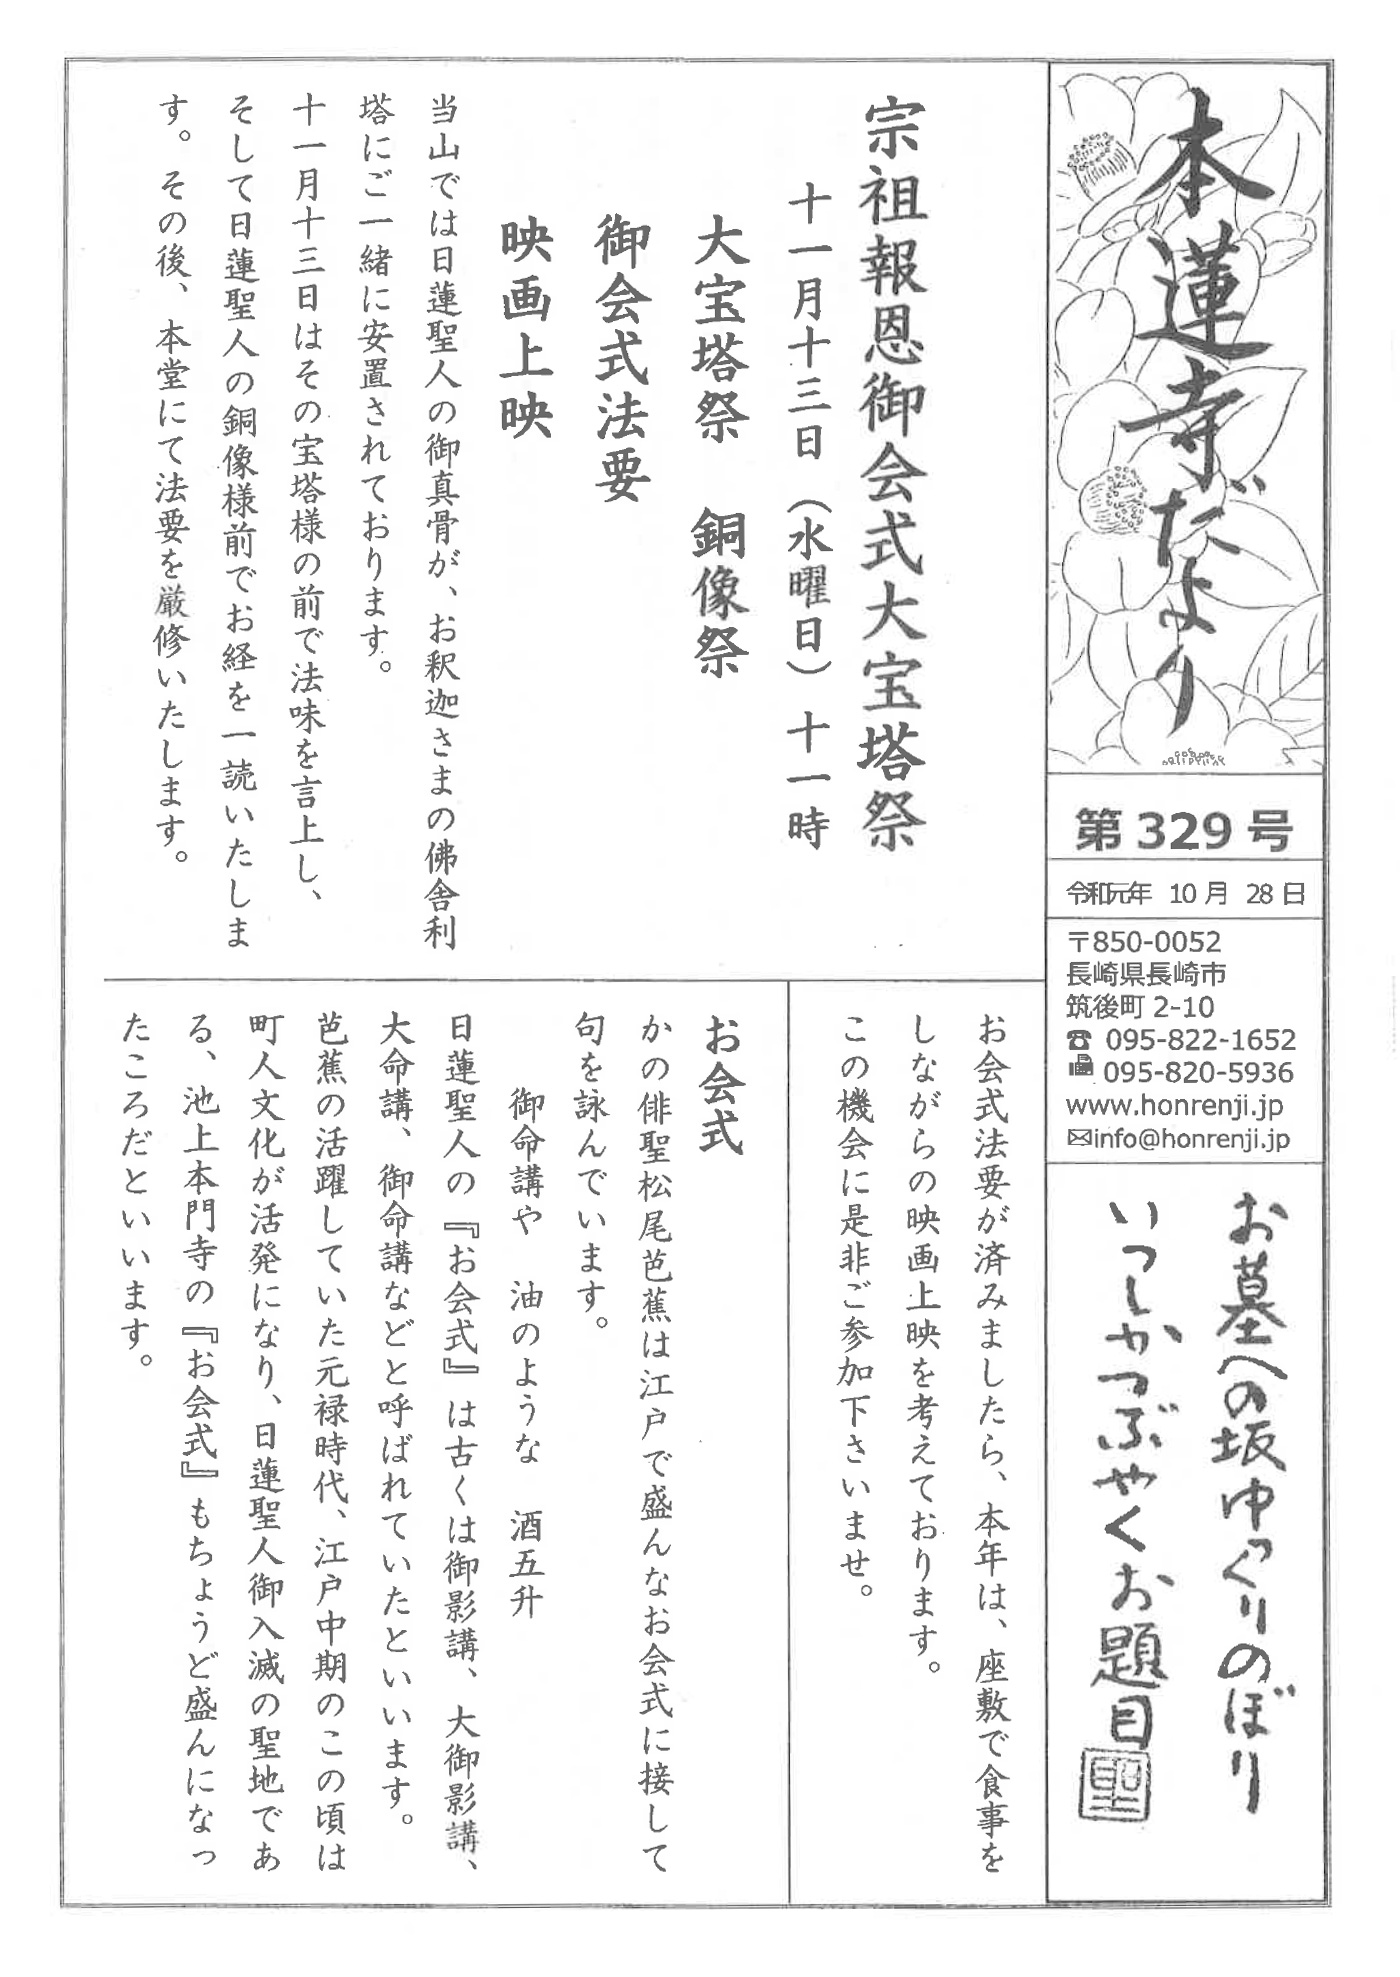 本蓮寺だより
第329号
令和元年 10月 28日
〒850-0052
長崎県長崎市
筑後町2-10
☎ 095-822-1652
095-820-5936
www.honrenji.jp
✉info@honrenji.jp
お墓への坂ゆっくりのぼり
いつしかつぶやくお題目
聖
宗祖報恩御会式大宝塔祭
十一月十三日（水曜日）十一時
大宝塔祭　銅像祭
御会式法要
映画上映
当山では日蓮聖人の御真骨が、お釈迦さまの佛舎利
塔にご一緒に安置されております。
十一月十三日はその宝塔様の前で法味を言上し、
そして日蓮聖人の銅像様前でお経を一読いたしま
す。その後、本堂にて法要を厳修いたします。
お会式法要が済みましたら、本年は、座敷で食事を
しながらの映画上映を考えております。
この機会に是非ご参加下さいませ。
お会式
かの俳聖松尾芭蕉は江戸で盛んなお会式に接して
句を詠んでいます。
御命講や　油のような　酒五升
日蓮聖人の『お会式』は古くは御影講、大御影講、
大命講、御命講などと呼ばれていたといいます。
芭蕉の活躍していた元禄時代、江戸中期のこの頃は
町人文化が活発になり、日蓮聖人御入滅の聖地であ
る、池上本門寺の『お会式』もちょうど盛んになっ
たころだといいます。